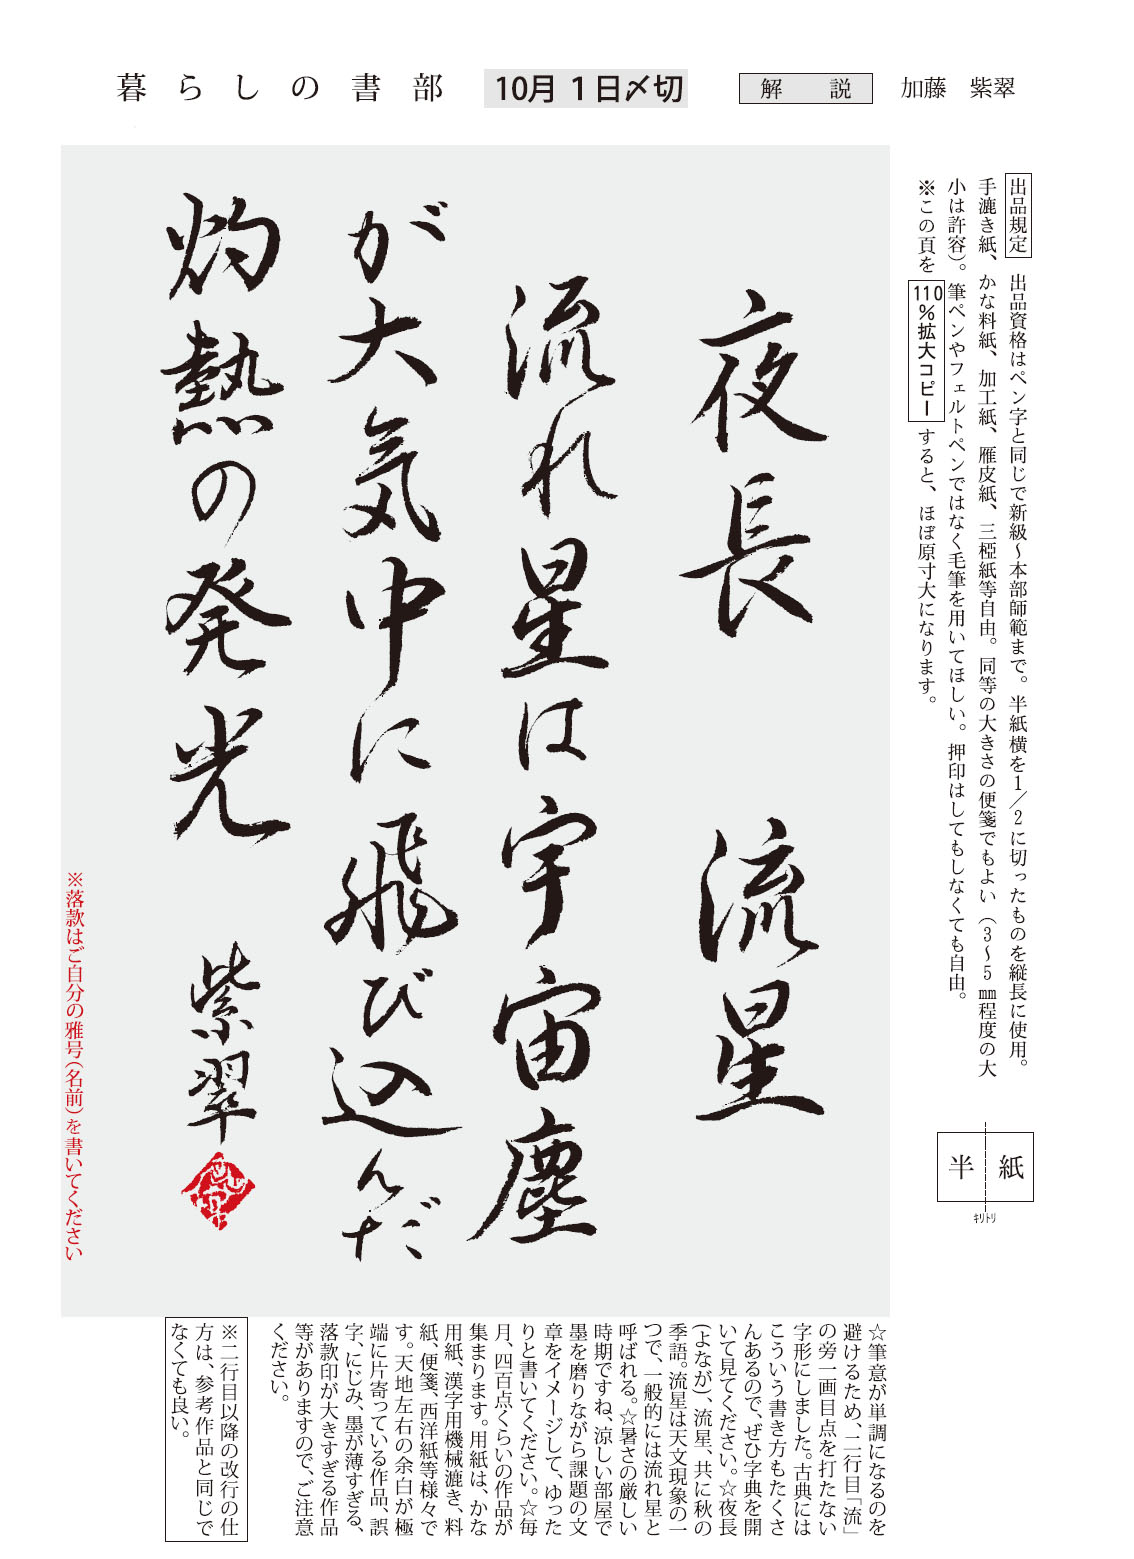 暮らしの書部 10月1日〆切 解説 加藤 紫翠
出品規定 出品資格はペン字と同じで新級〜本部師範まで。半紙横を1／2に切ったものを縦長に使用。
手漉き紙、かな料紙、加工紙、雁皮紙、三椏紙等自由。同等の大きさの便箋でもよい（3〜5㎜程度の大
小は許容）。筆ペンやフェルトペンではなく毛筆を用いてほしい。押印はしてもしなくても自由。
※この頁を110％拡大コピーすると、ほぼ原寸大になります。
半紙
キリトリ
夜長 流星
流れ星は宇宙塵
が大気中に飛び込んだ
灼熱の発光
紫翠
※落款はご自分の雅号（名前）を書いてください
☆筆意が単調になるのを
避けるため、二行目「流」
の旁一画目点を打たない
字形にしました。古典には
こういう書き方もたくさ
んあるので、ぜひ字典を開
いて見てください。☆夜長
（よなが）、流星、共に秋の
季語。流星は天文現象の一
つで、一般的には流れ星と
呼ばれる。☆暑さの厳しい
時期ですね、涼しい部屋で
墨を磨りながら課題の文
章をイメージして、ゆった
りと書いてください。☆毎
月、四百点くらいの作品が
集まります。用紙は、かな
用紙、漢字用機械漉き、料
紙、便箋、西洋紙等様々で
す。天地左右の余白が極
端に片寄っている作品、誤
字、にじみ、墨が薄すぎる、
落款印が大きすぎる作品
等がありますので、ご注意
ください。
※二行目以降の改行の仕
方は、参考作品と同じで
なくても良い。